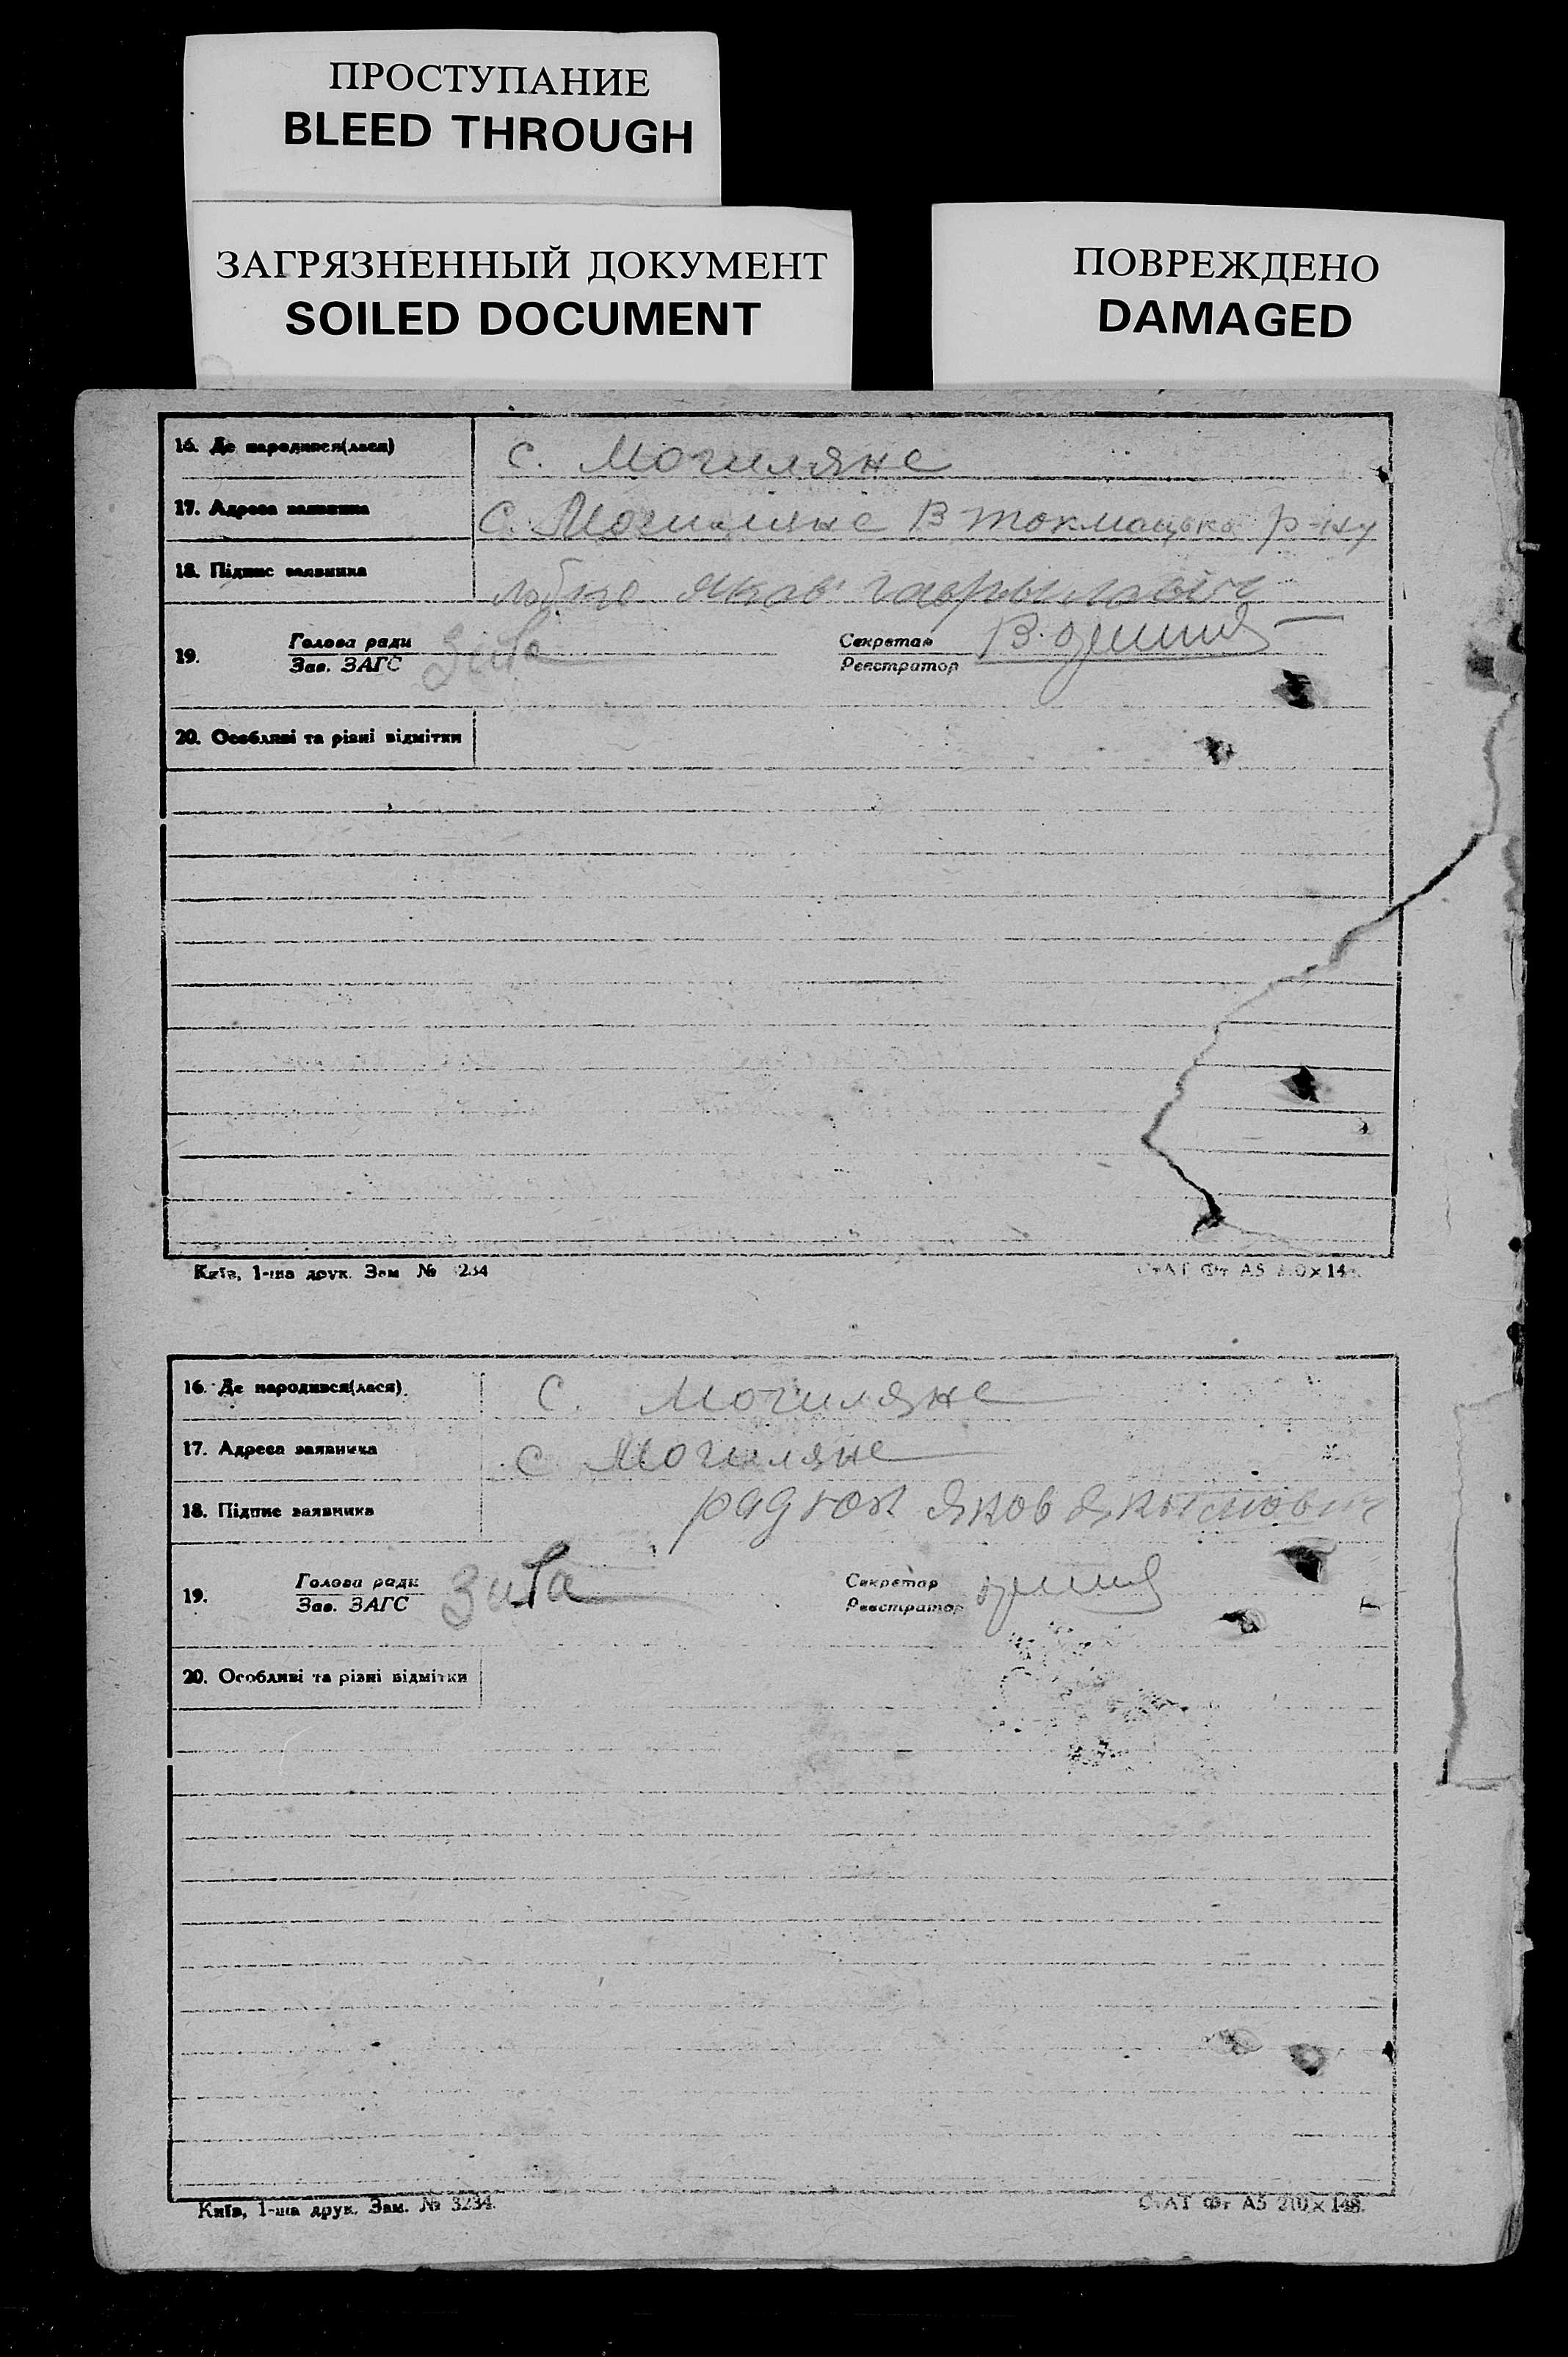 ПРОСТУПАНИЕ
BLEED THROUGH
ЗАГРЯЗНЕННЫЙ ДОКУМЕНТ
SOILED DOCUMENT
ПОВРЕЖДЕНО
DAMAGED
16. Де народився(лася) с. Могиляне
17. Адреса заявника с. Могиляне В Токмацько р-ну
18. Підпис заявника Яков
19. Голова ради
Зав. ЗАГС Зига
Секретар
Реєстратор
20. Особливі та різні відмітки
Київ, 1-ша друк. Зам № 3234
СтАТ Фт А5 210×148.
16. Де народився(лася) с. Могиляне
17. Адреса заявника с Могиляне
18. Підпис заявника Яков
19. Голова ради
Зав. ЗАГС Зига
Секретар
Реєстратор
20. Особливі та різні відмітки
Київ, 1-ша друк. Зам. № 3234.
СтАТ Фт А5 210×148.